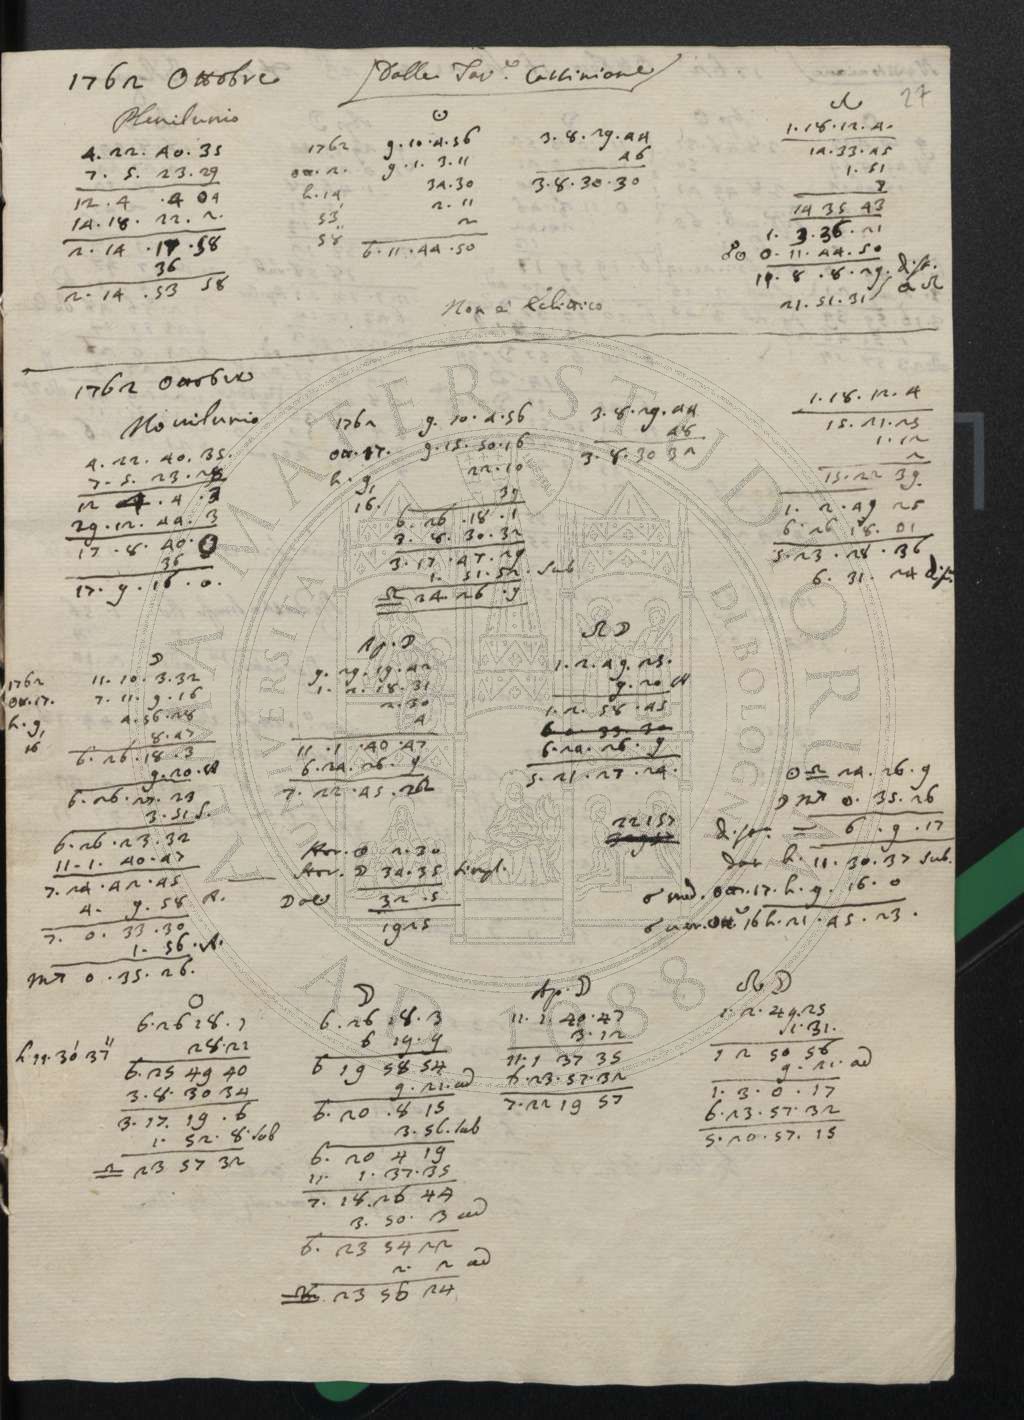 27
1762 Ottobre
Dalle Tav.e Cassiniane
Plenilunio
4. 22. 40. 35
7. 5. 23. 29
12. 4 . 4 04
14. 18. 22. 2.
2. 14 . 17 . 58
36
2. 14 . 53 58
☉
1762 9. 10. 4. 56
Ott. 2. 9. 1. 3. 11
h. 14, 34. 30
53' 2. 11
58'' 2
6. 11. 44. 50
3. 8. 29. 44
46
3. 8. 30. 30
☊
1. 18. 12. 4.
14. 33. 45
1. 51
7
14 35 43
1. 3. 36. 21
0. 11. 44. 50
19. 8. 8. 29.
21. 51. 31
Non è Eclittico
1762 Ottobre
Novilunio
4. 22. 40. 35.
7. 5. 23. 28
12 4 . 4 . 3
29. 12. 44. 3
17 . 8. 40. 0
36
17. 9. 16 . 0.
1762 9. 10. 4. 56
Ott. 17. 9. 15. 50. 16
h. 9, 22. 10
16. 39
6. 26 . 18 . 1
3. 8. 30. 32
3. 17. 47. 29
1. 51. 52. sub
♎ 24. 26 . 9
3. 8. 29. 44
48
3. 8. 30 32
1. 18. 12. 4
15. 21. 25
1. 12
2
15. 22 39.
1. 2. 49 25
6. 26 18. 01
5. 23. 28. 36
6. 31. 24 diff.
☽
1762 11. 10. 3. 32
Ott. 17. 7. 11. 9. 16
h. 9, 4. 56. 28
16 8. 47
6. 26. 18. 3
9. 20. A
6. 26. 27. 23
3. 51. S.
6. 26. 23. 32
11. 1. 40. 47
7. 24. 42. 45
4. 9. 58 A.
7. 0. 33. 30
1. 56. A.
♏ 0. 35. 26.
Ap. ☽
9. 29. 19. 42
1. 2. 18. 31
2. 30
4
11. 1. 40. 47
6. 24. 26. 9
7. 22. 45. 22
☊ ☽
1. 2. 49. 25.
9. 20 A
1. 2. 58. 45
6. 0. 33. 30
6. 24. 26. 9
5. 21. 27. 24.
☉ ♎ 24. 26. 9
☽ ♏ 0. 35. 26
diff. = 6 . 9 . 17
dat h. 11. 30. 37 sub.
☌ med. Ott. 17. h. 9. 16. 0
☌ ver. Ott. 16 h. 21. 45. 23.
22 157
Hor. ☉ 2. 30
Hor. ☽ 34. 35
32 . 5
1925
☉
6. 26 18. 1
h. 11. 30' 37'' 28. 21
6. 25 49 40
3. 8. 30 34
3. 17. 19 . 6
1. 52. 8. sub
♎ 23 57 32
☽
6. 26 18. 3
6 19. 9
6 19 58 54
9. 21. ad
6. 20 . 8 15
3. 56. sub
6. 20 4 19
11. 1. 37. 35
7. 18. 26 44
3. 50. 3 ad
6. 23 54 22
2. 2 ad
6. 23 56 24
Ap. ☽
11. 1. 40. 47
3. 12
11. 1 37 35
6. 23. 57. 32
7. 22 19 57
☊ ☽
1. 2. 49. 25
1. 31.
1 2 50 56
9. 21. ad
1. 3. 0. 17
6. 23. 57. 32
5. 20. 57. 15
ALMA MATER STUDIORUM
UNIVERSITÀ DI BOLOGNA
A.D. 1088